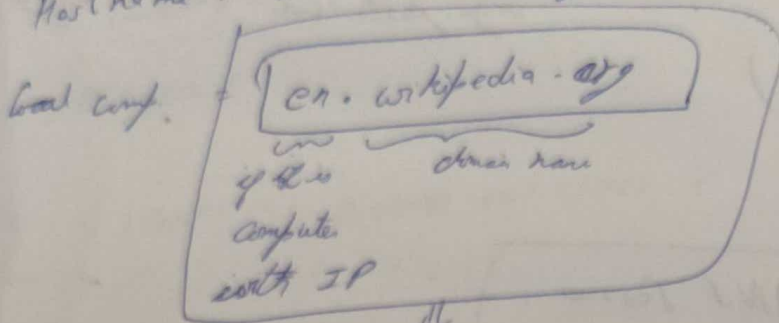 Hostname
comp. = en. wikipedia. org
domain name
if
computer
with IP